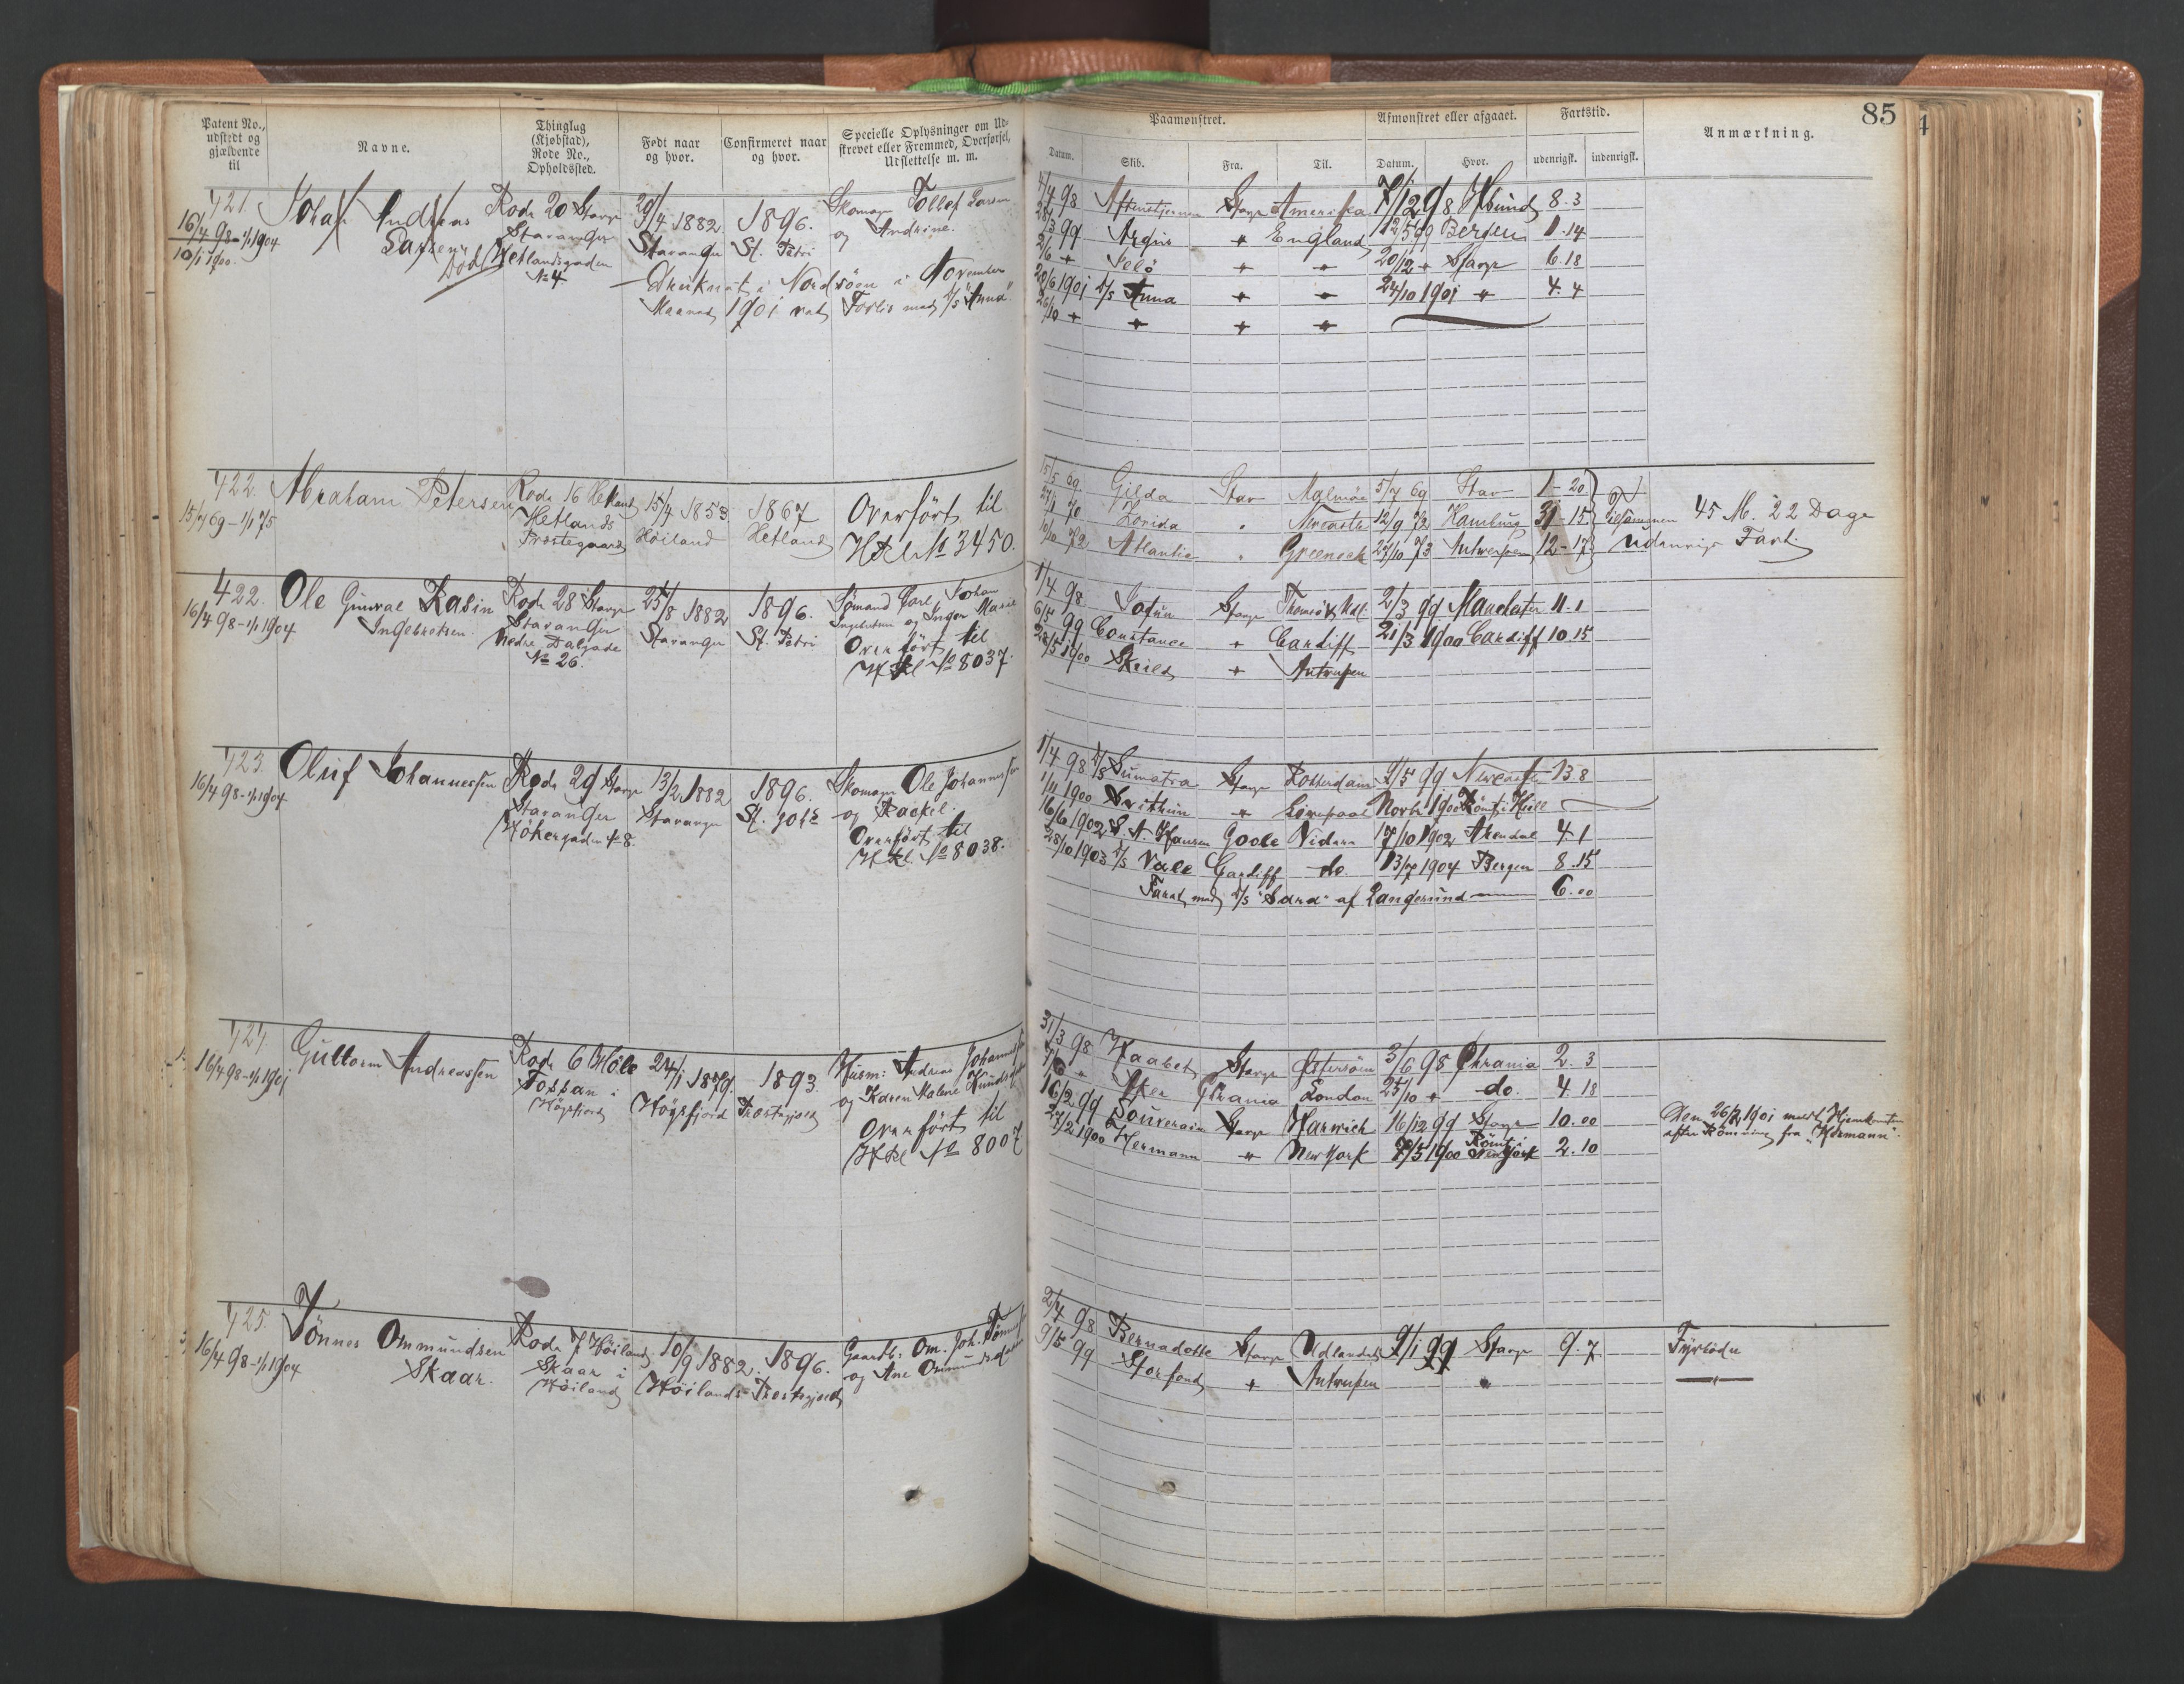 85
Patent No., udstedt og gjældende til
Navne.
Thinglag (Kjøbstad), Rode No., Opholdssted.
Født naar og hvor.
Confirmeret naar og hvor.
Specielle Oplysninger om Udskrevet eller Fremmed, Overførsel, Udslettelse m. m.
Paamønstret.
Afmønstret eller afgaaet.
Fartstid.
Anmærkning.
Datum. Skib. Fra. Til. Datum. Hvor. udenrigsk. indenrigsk.
421. Johan Andreas Rode 20 Stavgr 29/4 1882 1896. Skomager Tollef Larsen
16/4 98 - 1/1 1904 Larsen Stavanger Stavanger St. Petri og Andrine.
10/1 1900. Død Hetlandsgaden
No 4
Druknet i Nordsöen i November
Maaned 1901 ved Forlis med D/S "Anna".
4/4 98 Stavgr Amerika 7/12 98 8.3
28/3 99 Argus " England 12/5 99 Bergen 1.14
2/6 " Selö " " 20/12 " Stavgr 6.18
20/6 1901 D/S Anna " " 24/10 1901 " 4.4
26/10 " " " "
422. Abraham Petersen Rode 16 Hetland 15/4 1853 1867 Overført til
15/7 69 - 1/1 75 Hetlands Höiland Hetland HRl. No 3450.
Præstegaard
15/5 69 Gilda Stav Malmöe 5/7 69 Stav 1-20
27/1 70 Zorida " Newcastle 12/9 72 Hamburg 31-15 tilsammen 45 M. 22 Dage
10/10 72 Atlantic " Greenock 27/10 73 Antwerpen 12-17 udenrigs Fart.
422. Ole Gunval Rasin Rode 28 Stavgr 25/8 1882 1896. Sömand Carl Johan
16/4 98 - 1/1 1904 Ingebretsen. Stavanger Stavanger St. Petri Ingebretsen og Inger Marie
Nedre Dalgade Overfört til
No 26. HRl No 8037.
1/4 98 Jotun Stavgr 2/3 99 Manchester 11.1
6/5 99 Constance " Cardiff 21/3 1900 Cardiff 10.15
28/5 1900 Skield " Antwerpen
423. Oluf Johannessen Rode 29 Stavgr 13/2 1882 1896. Skomager Ole Johannessen
16/4 98 - 1/1 1904 Stavanger Stavanger St. Joh: og Rachel.
Hökergaden 8. Overfört til
HRl. No 8038.
1/4 98 D/S Sumatra Stavgr Rotterdam 9/5 99 Newcastle 13.8
1/11 1900 Svithun " Liverpool Novbr 1900 Römt i Hull
16/6 1902 S. N. Hansen Goole Videre 17/10 1902 Arendal 4.1
28/10 1903 D/S Vale Cardiff do. 13/7 1904 Bergen 8.15
Faret med D/S "Sara" af Langesund 6.00
424. Guttorm Andreassen Rode 6 Höle 24/1 1879. 1893. Husm: Andreas Johannessen
16/4 98 - 1/1 1901 Fossan i Högsfjord Præstegjeld og Karen Malene Knudsdatter
Högsfjord Overfört til
HRl No 8007
31/3 98 Haabet Stavgr Östersöen 3/6 98 Chrania 2.3
7/6 " Aker Chrania London 25/10 " do. 4.18
16/2 99 Souverain Stavgr Harwich 16/12 99 Stavgr 10.00 Den 26/2 1901 meldt Hjemkommen
27/2 1900 Hermann " New York 7/5 1900 Römt i New York 2.10 efter Römning fra "Hermann".
425. Tönnes Ommundsen Rode 7 Höiland 10/9 1882. 1896. Gaardb: Om. Joh. Tönnessen
16/4 98 - 1/1 1904 Skaar. Skaar i Höilands Præstegjeld og Ane Ommundsdatter
Höiland
2/4 98 Bernadotte Stavgr Udlandet 9/1 99 Stavgr 9.7 Fyrböder
9/5 99 Storfond " Antwerpen " "